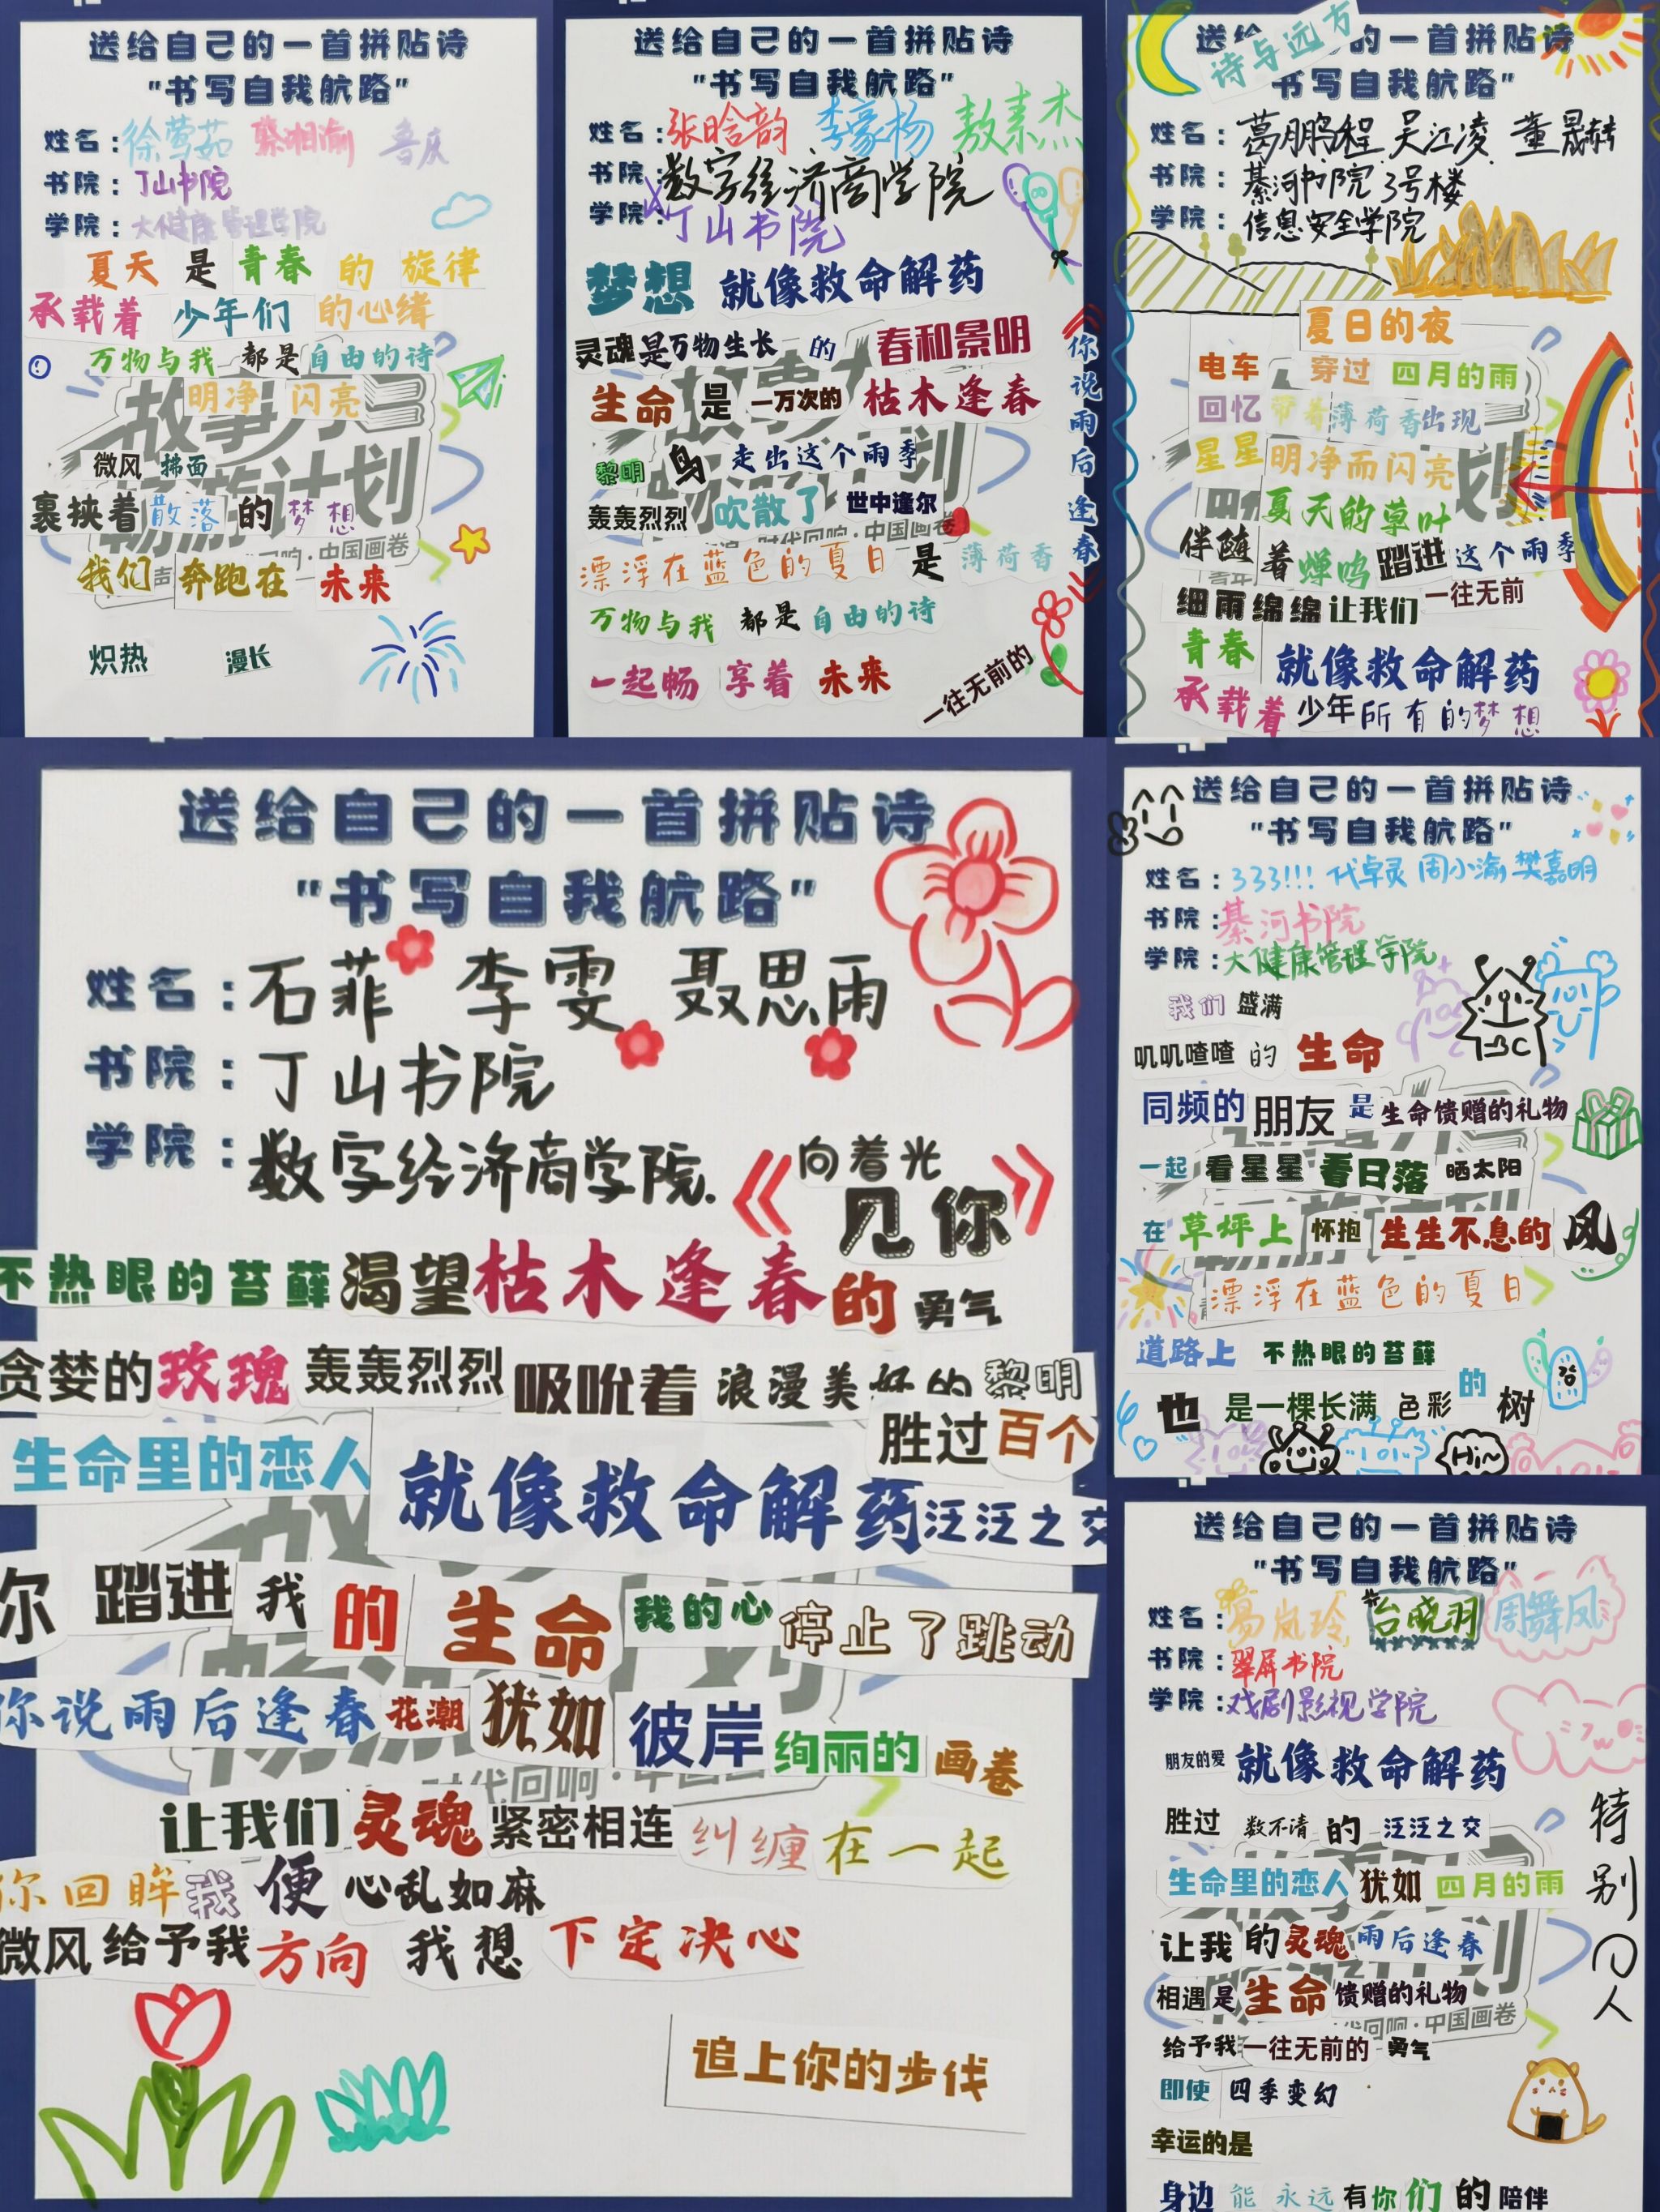 送给自己的一首拼贴诗
"书写自我航路"
姓名：徐莺茹 綦湘渝
书院：丁山书院
学院：大健康管理学院
夏天 是 青春 的 旋律
承载着 少年们 的心绪
万物与我 都是 自由的诗
明净 闪亮
微风 拂面
裹挟着 散落 的 梦想
我们 奔跑在 未来
炽热 漫长
送给自己的一首拼贴诗
"书写自我航路"
姓名：张晗韵 李豪杨 敖素杰
书院：数字经济商学院
学院：丁山书院
梦想 就像救命解药
灵魂是万物生长 的 春和景明
生命 是 一万次的 枯木逢春
黎明 鸟 走出这个雨季
轰轰烈烈 吹散了 世中逢尔
漂浮在蓝色的夏日 是 薄荷香
万物与我 都是 自由的诗
一起畅享着 未来
一往无前的
《你说雨后逢春》
送给自己的一首拼贴诗
诗与远方
"书写自我航路"
姓名：葛鹏程 吴江凌 董晟赫
书院：綦河书院 3号楼
学院：信息安全学院
夏日的夜
电车 穿过 四月的雨
回忆 带着 薄荷香 出现
星星 明净而闪亮
夏天的草叶
伴随着 蝉鸣 踏进 这个雨季
细雨绵绵 让我们 一往无前
青春 就像救命解药
承载着 少年 所有的梦想
送给自己的一首拼贴诗
"书写自我航路"
姓名：石菲 李雯 聂思雨
书院：丁山书院
学院：数字经济商学院.
《向着光
见你》
不热眼的苔藓 渴望 枯木逢春 的 勇气
贪婪的 玫瑰 轰轰烈烈 吸吮着 浪漫美好的 黎明
胜过 百个
生命里的恋人 就像救命解药 泛泛之交
你 踏进 我 的 生命 我的心 停止了跳动
你说雨后逢春 花潮 犹如 彼岸 绚丽的 画卷
让我们 灵魂 紧密相连 纠缠 在一起
你回眸 我 便 心乱如麻
微风 给予我 方向 我想 下定决心
追上你的步伐
送给自己的一首拼贴诗
"书写自我航路"
姓名：333!!! 代卓灵 周小渝 樊嘉明
书院：綦河书院
学院：大健康管理学院
我们 盛满
叽叽喳喳 的 生命
同频的 朋友 是 生命馈赠的礼物
一起 看星星 看日落 晒太阳
在 草坪上 怀抱 生生不息的 风
漂浮在蓝色的夏日
道路上 不热眼的苔藓
也 是一棵长满 色彩 的 树
Hin
送给自己的一首拼贴诗
"书写自我航路"
姓名：易岚玲 台晓羽 周舞风
书院：翠屏书院
学院：戏剧影视学院
朋友的爱 就像救命解药
胜过 数不清 的 泛泛之交
生命里的恋人 犹如 四月的雨
让我 的 灵魂 雨后逢春
相遇 是 生命 馈赠的礼物
给予我 一往无前的 勇气
即使 四季变幻
幸运的是
身边 能 永远 有你们 的 陪伴
特别の人